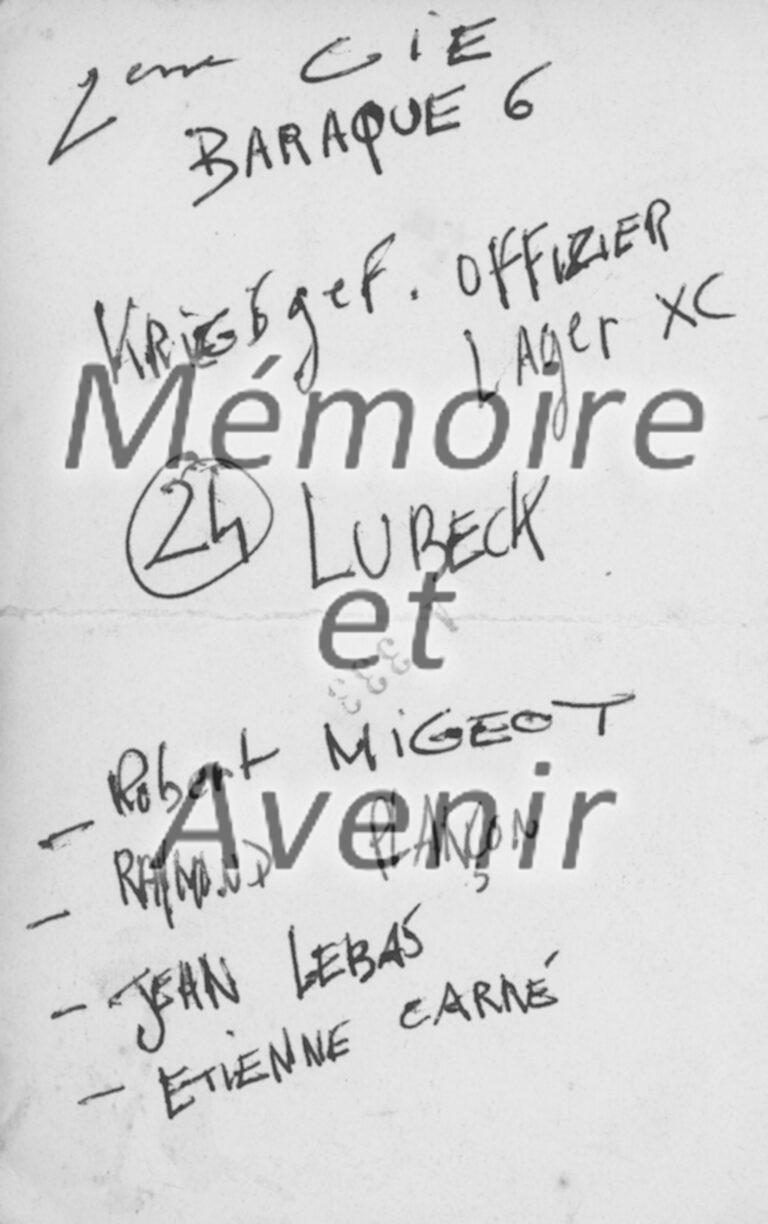 2eme CIE
BARAQUE 6
KRIEGSgef. OFFIZIER
LAger XC
Mémoire
24 LUBECK
et
- Robert MIGEOT
Avenir
- RAYMOND PLANÇON
- JEAN LEBAS
- ETIENNE CARRÉ